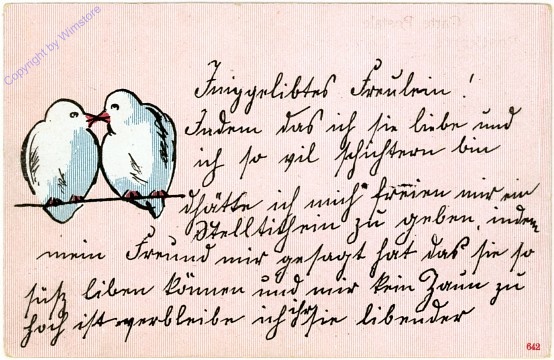 Copyright by Wimstore
Iniggelibtes Freulein!
Indem das ich sie liebe und
ich so vil schichtern bin
dhätte ich mich freien mir ein
Stelltithein zu geben, indem
mein Freund mir gesagt hat das sie so
süß liben können und mir kein Zaun zu
hoch ist verbleibe ich ihr sie libender
642